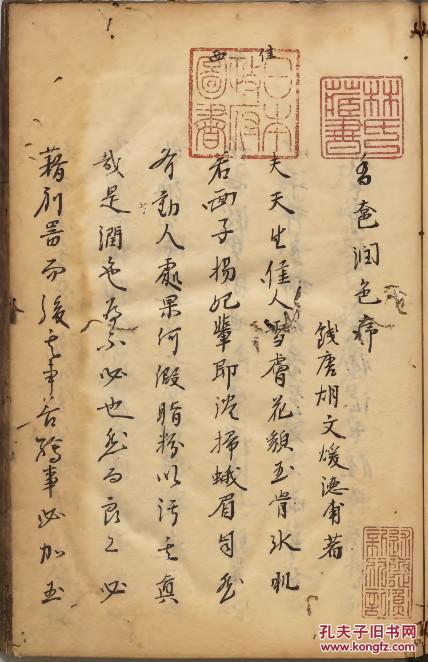 林氏藏書
日本政府圖書
佳
西
香奩潤色序
錢唐胡文煥德甫著
夫天生催人雪膚花貌玉骨氷肌
若面子楊妃輩即淡掃蛾眉自然
有動人處果何假脂粉以污其真
哉是潤色為不必也然而良工必
藉利器而後其事善綉事必加玉
孔夫子旧书网
KONGFZ.COM